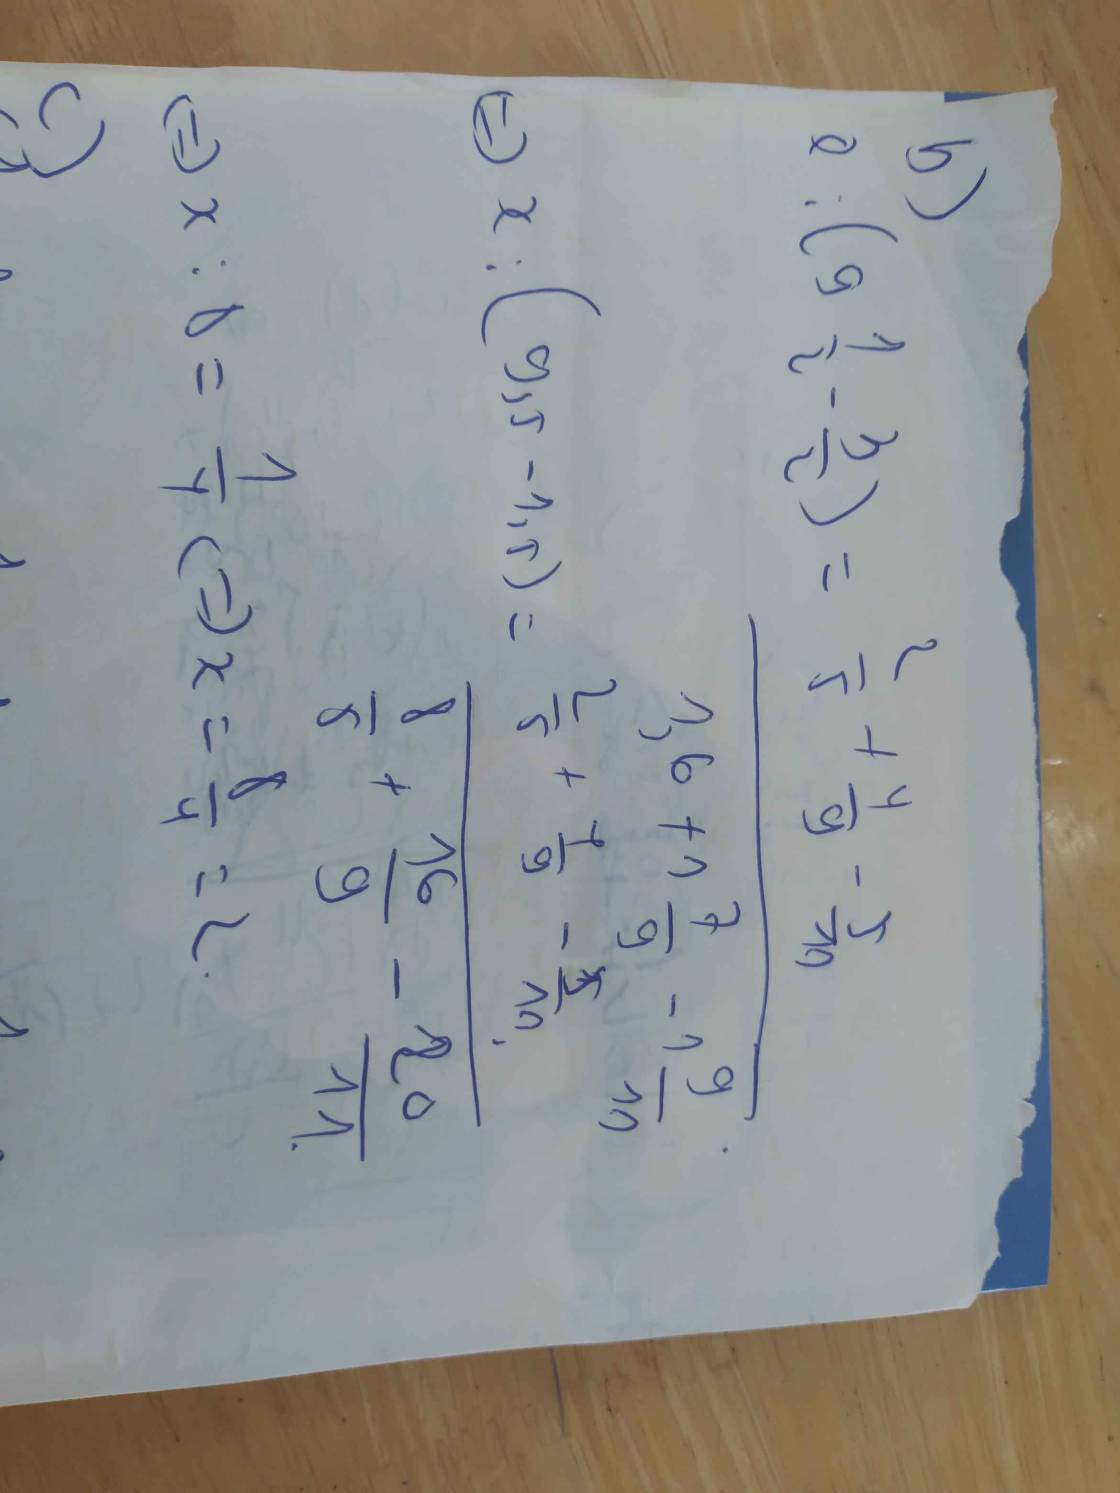 b)
x : (9 1/2 - 3/2) = (2/5 + 4/9 - 5/10) / (1,6 + 1 7/9 - 1 9/10).
(=) x : (9,5 - 1,5) = (2/5 + 4/9 - 5/10.) / (8/5 + 16/9 - 20/11.)
(=) x : 8 = 1/4 (=) x = 8/4 = 2.
c)